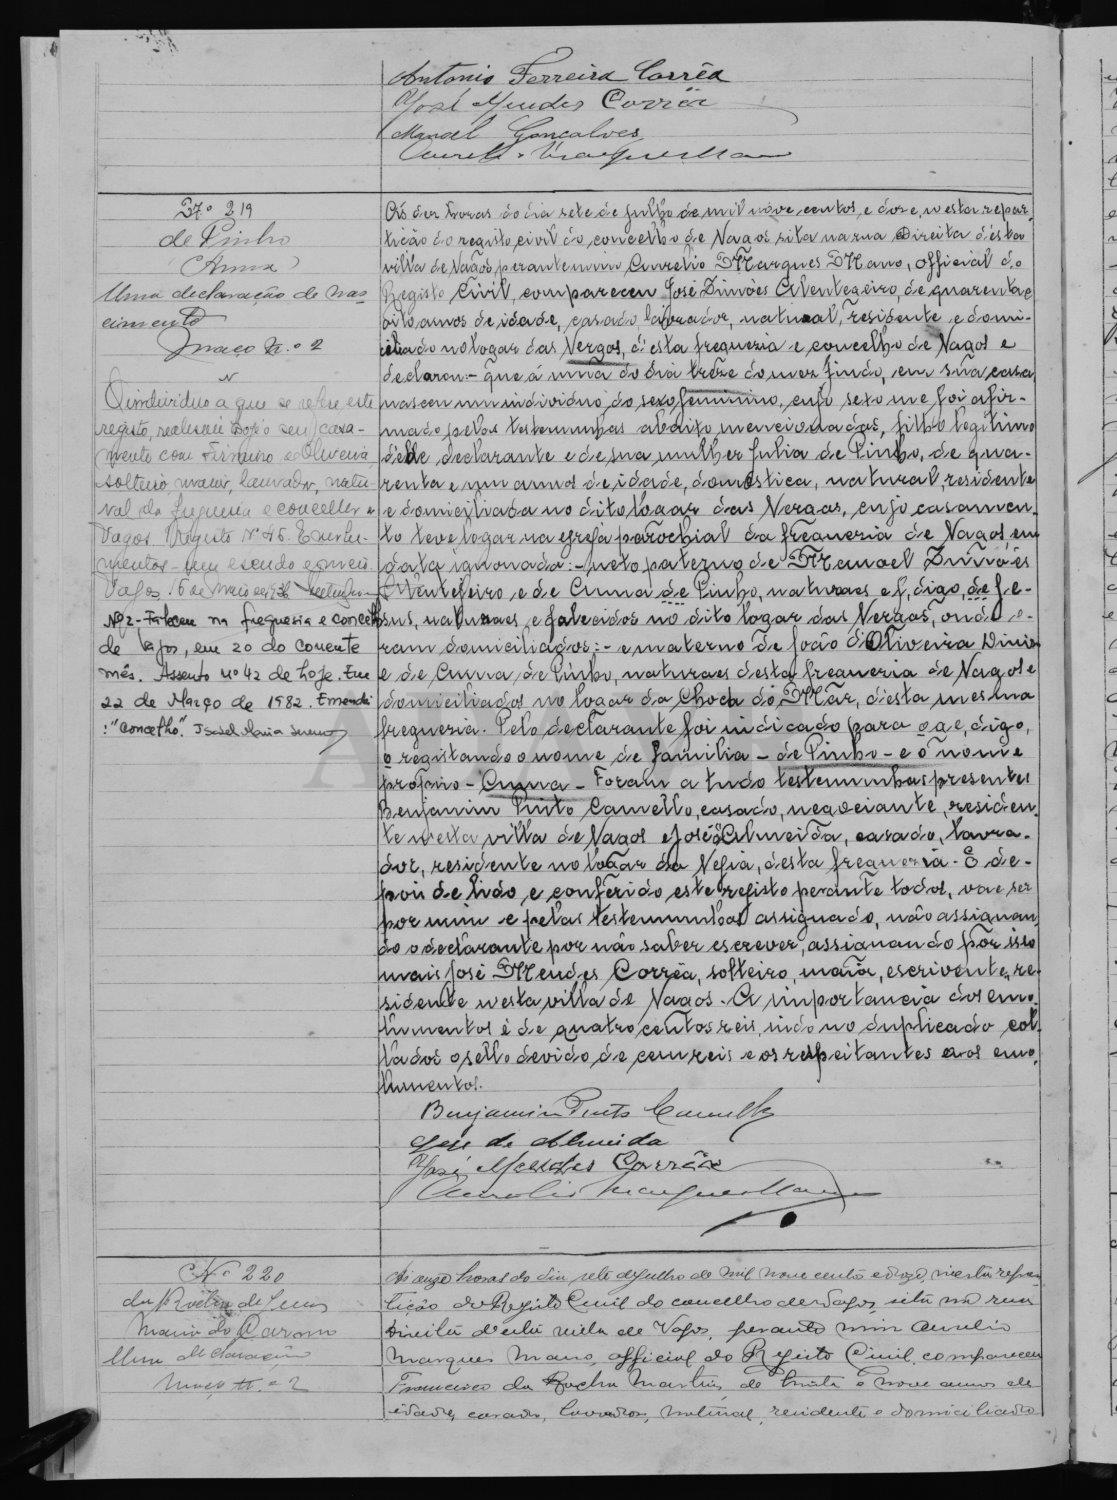 Antonio Ferreira Corrêa
José Mendes Corrêa
Manoel Gonçalves
Aurelio Marques Mano
Nº 219
de Pinho
(Anna)
Uma declaração de nas-
cimento
Maço N.º 2
O individuo a que se refere este
registo, realisou hoje o seu casa-
mento com Firmino de Oliveira
solteiro maior, lavrador, natu-
ral da freguesia e concelho de
Vagos. Registo Nº 46.
mentos - um escudo e meio.
Vagos, 16 de Maio de
Nº 2 - Faleceu na freguesia e concelho
de Vagos, em 20 do corrente
mês. Assento nº 42 de hoje. Em
22 de Março de 1982. Emendei
: "concelho". Isabel Maria
Ás dez horas do dia sete de Julho de mil nove centos e doze, n'esta repar-
tição do registo civil do concelho de Vagos sita na rua Direita d'esta
villa de Vagos, perante mim Aurelio Marques Mano, official do
Registo Civil, compareceu José Simões Alentegeiro, de quarenta e
oito annos de idade, casado, lavrador, natural, residente e domi-
ciliado no logar das Vergas, d'esta freguezia e concelho de Vagos e
declarou: - que á uma do dia treze do mez findo, em sua casa
nasceu um individuo do sexo feminino, cujo sexo me foi afir-
mado pelas testemunhas abaixo mencionadas, filho legitimo
d'elle declarante e de sua mulher Julia de Pinho, de qua-
renta e um annos de idade, domestica, natural, residente
e domiciliada no dito logar das Vergas, cujo casamen-
to teve logar na egreja parochial da freguezia de Vagos em
data ignorada: - neto paterno de Manoel Simões
Alentejeiro, e de Anna de Pinho, naturaes e, digo, de Je-
sus, naturaes, e falecidos no dito logar das Vergas, onde e-
ram domiciliados: - e materno de João d'Oliveira Diniz
e de Anna de Pinho, naturaes desta freguezia de Vagos e
domiciliados no logar da Choca do Mar, d'esta mesma
freguezia. Pelo declarante foi indicado para o que, digo,
o registando o nome de familia - de Pinho - e o nome
proprio - Anna - Foram a tudo testemunhas presentes
Benjamim Pinto Camello, casado, negociante, residen-
te n'esta villa de Vagos e José d'Almeida, casado, lavra-
dor, residente no logar da Vejia, desta freguezia. E de-
pois de lido e conferido este registo perante todos, vae ser
por mim e pelas testemunhas assignado, não assignan-
do o declarante por não saber escrever, assignando por isso
mais José Mendes Corrêa, solteiro, maior, escrivente, re-
sidente n'esta villa de Vagos. A importancia dos emo-
lumentos é de quatro centos reis, indo no duplicado col-
lados o sello devido de cem reis e os respeitantes aos emo-
lumentos.
Benjamim Pinto Camello
José de Almeida
José Mendes Corrêa
Aurelio Marques Mano
Nº 220
da Rocha de Jesus
Maria do Carmo
Uma declaração
Maço N.º 2
Ás onze horas do dia sete de Julho de mil nove centos e doze, n'esta repar-
tição do Registo Civil do concelho de Vagos, sita na rua
Direita d'esta villa de Vagos, perante mim Aurelio
Marques Mano, official do Registo Civil, compareceu
Francisco da Rocha Martins, de trinta e nove annos de
idade, casado, lavrador, natural, residente e domiciliado